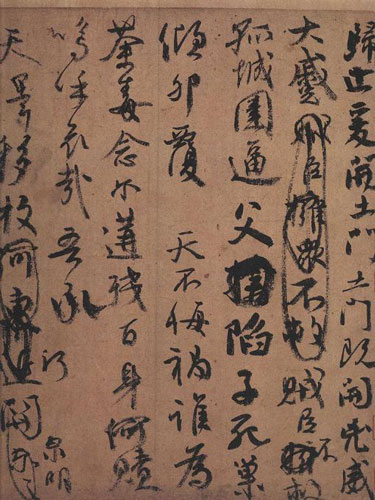 歸止爰開土門土門既開凶威
大蹙賊臣擁衆不救賊臣不救
孤城圍逼父陷子死巢
傾卵覆天不悔禍誰為
荼毒念爾遘殘百身何贖
嗚乎哀哉吾承
泉明
天澤移牧河關